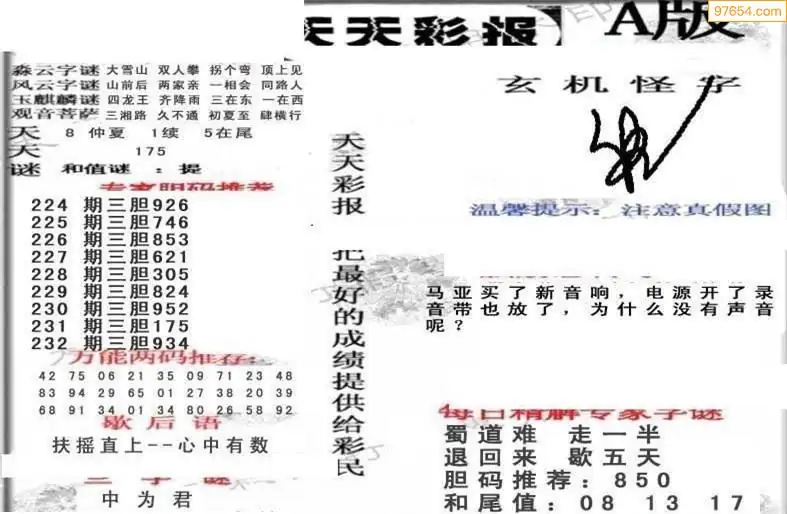 97654.com
天天彩报】A版
森云字谜 大雪山 双人攀 拐个弯 顶上见
风云字谜 山前后 两家亲 一相会 同路人
玉麒麟谜 四龙王 齐降雨 三在东 一在西
观音菩萨 三湘路 久不通 初夏至 肆横行
天 8 仲夏 1续 5在尾
天 175
谜 和值谜 : 提
专家胆码推荐
224 期三胆926
225 期三胆746
226 期三胆853
227 期三胆621
228 期三胆305
229 期三胆824
230 期三胆952
231 期三胆175
232 期三胆934
万能两码推荐:
42 75 06 21 35 09 71 23 48
83 94 29 65 01 27 38 20 39
68 91 34 01 34 80 26 58 92
歇后语
扶摇直上--心中有数
三字谜
中为君
天天彩报
把最好的成绩提供给彩民
玄机怪字
温馨提示: 注意真假图
马亚买了新音响，电源开了录
音带也放了，为什么没有声音
呢？
每日精解专家字谜
蜀道难 走一半
退回来 歇五天
胆码推荐: 850
和尾值: 08 13 17